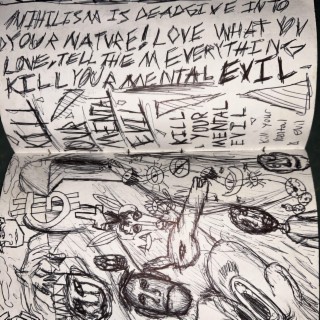 NIHILISM IS DEADGIVE IN TO
YOUR NATURE! LOVE WHAT YOU
LOVE, TELL THEM EVERYTHING
KILL YOUR MENTAL EVIL
KILL
YOUR
MENTAL
EVIL
KILL
YOUR
MENTAL
EVIL
Kill Your
Mental
Evil